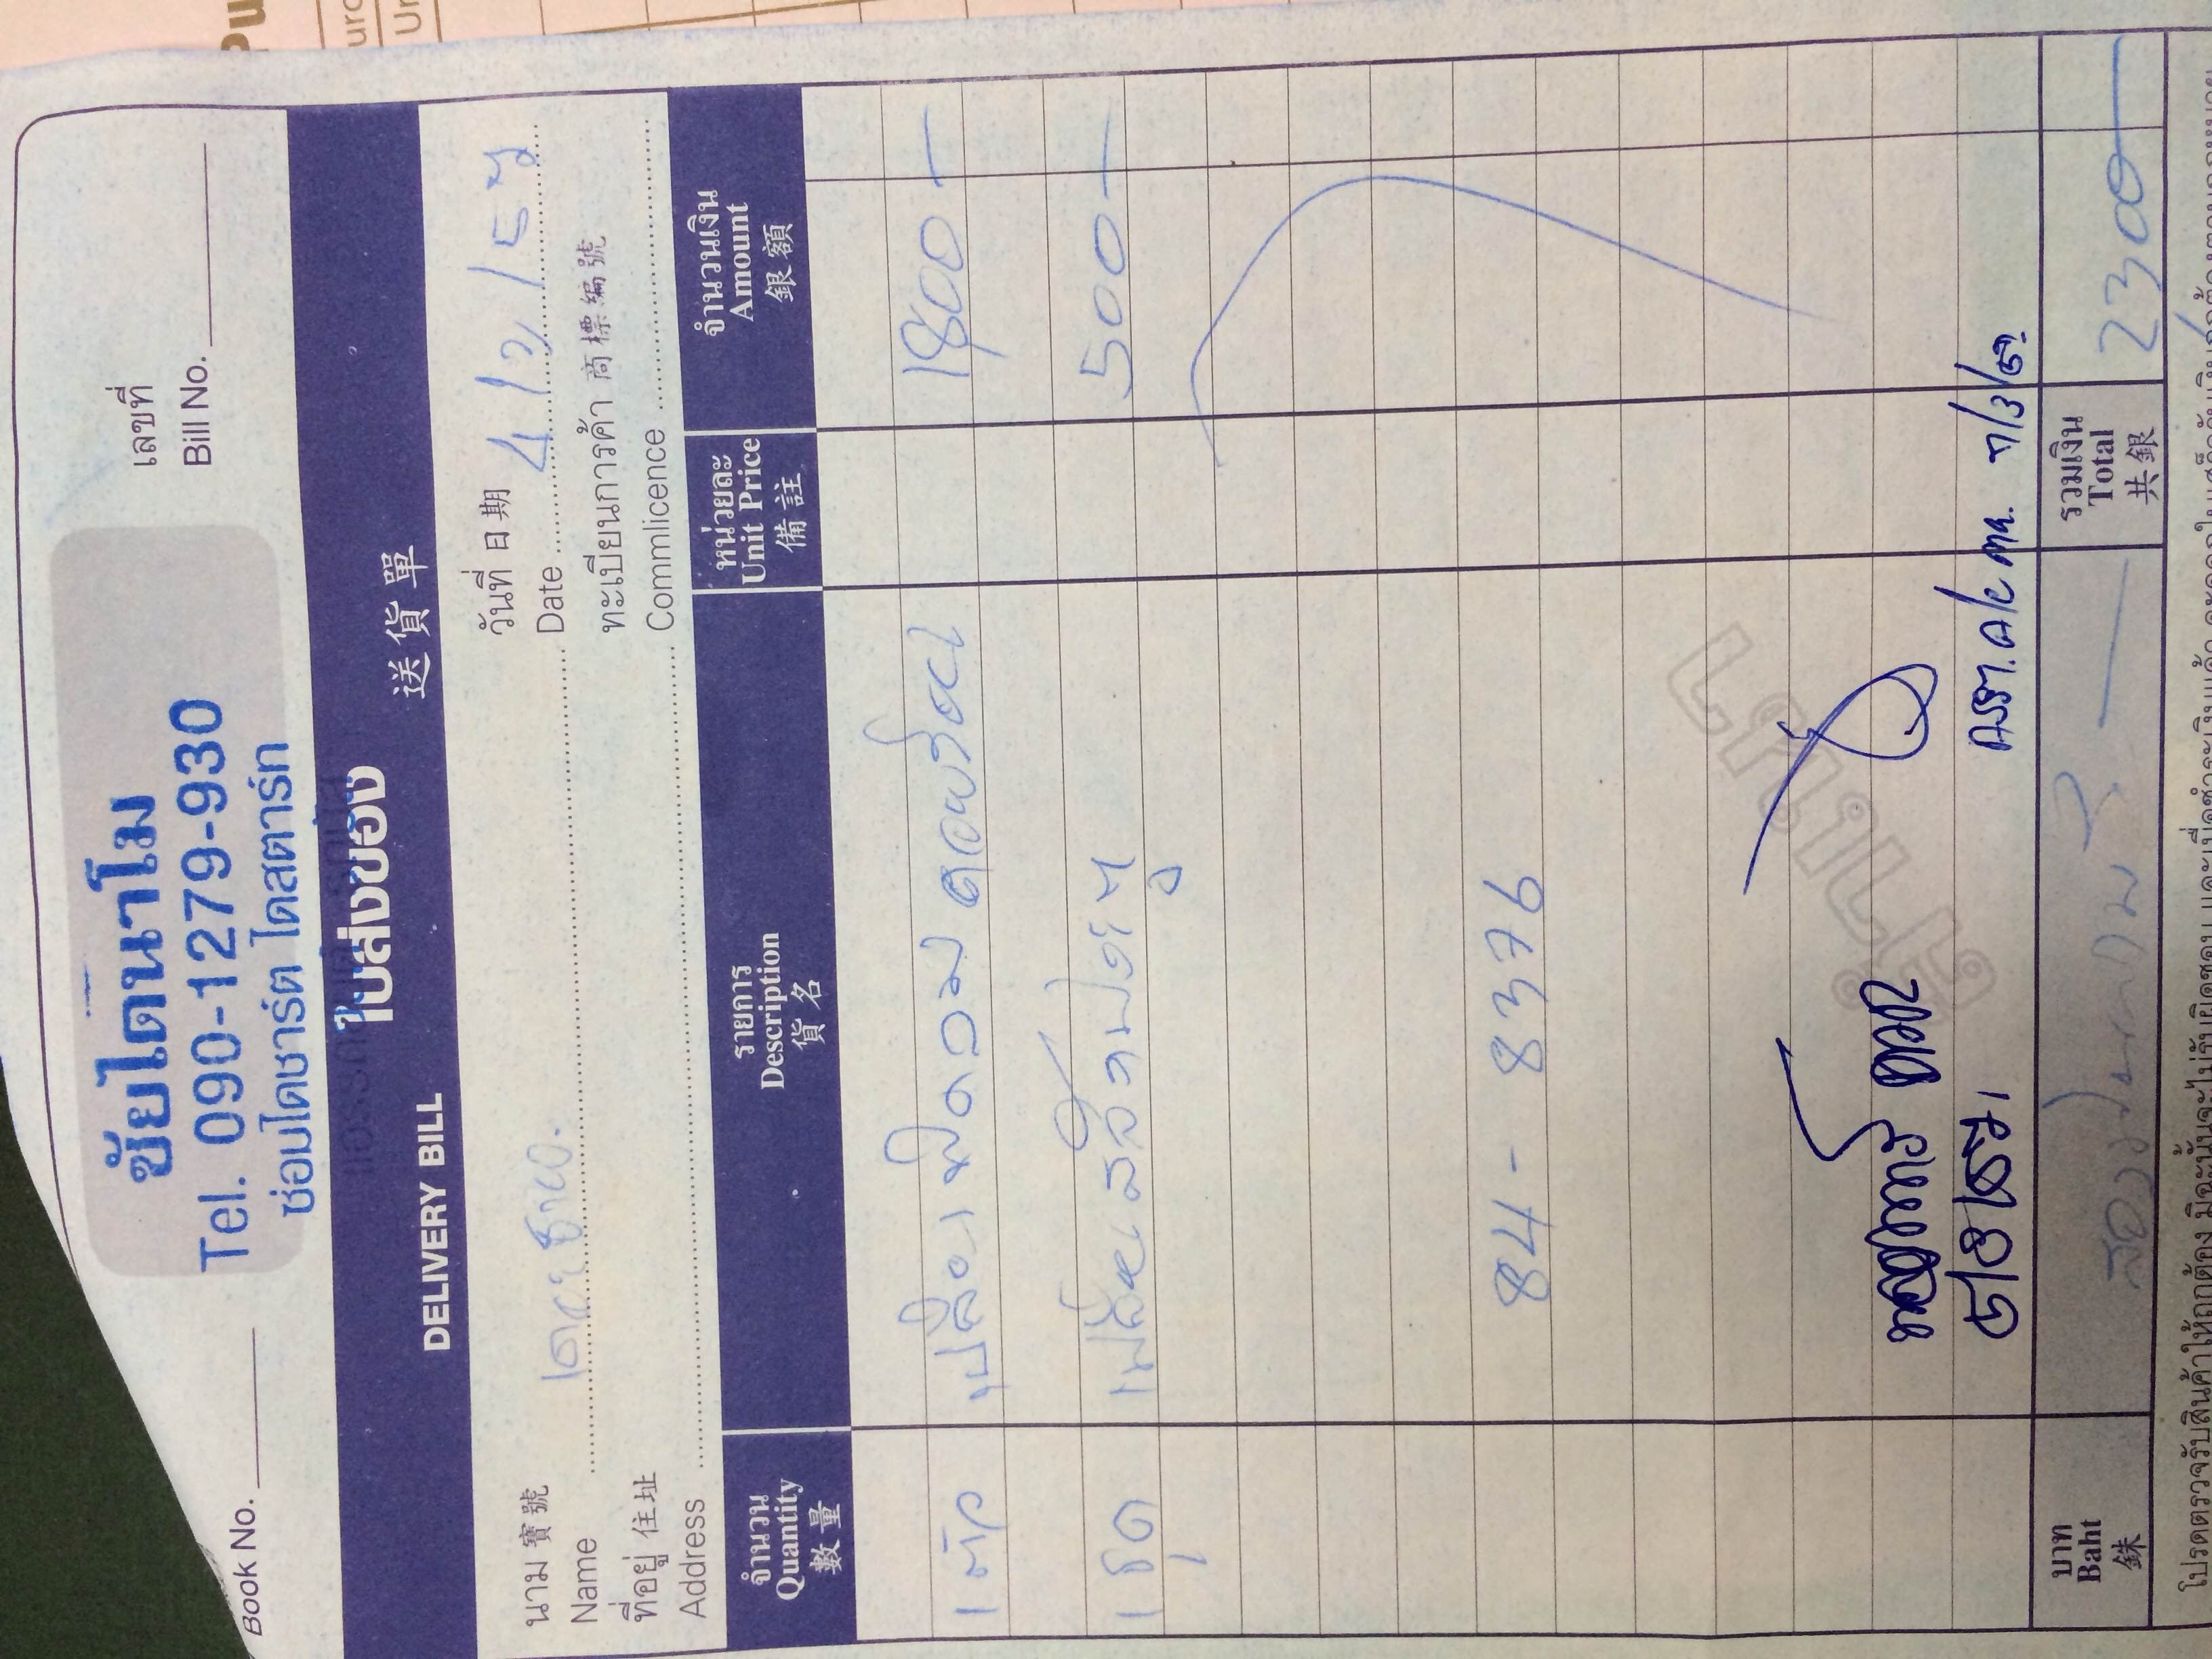 ชัยไดนาโม
Tel. 090-1279-930
ซ่อมไดชาร์ต ไดสตาร์ท
เลขที่
Bill No.
Book No.
ใบส่งของ
DELIVERY BILL 送貨單
นาม 寶號
Name
วันที่ 日期
Date 4/3/57
ที่อยู่ 住址
Address
ทะเบียนการค้า 商標編號
Commlicence
จำนวน
Quantity
數量
รายการ
Description
貨名
หน่วยละ
Unit Price
備註
จำนวนเงิน
Amount
銀額
1 ตัว เปลี่ยน พัดลม คอยร้อน 1,800 —
1 ชุด เปลี่ยน สลักประตู 500 —
84 - 8376
สำเนา
5/3/57
7/3/57
บาท
Baht
銖
สองพันสามร้อย —
รวมเงิน
Total
共銀
2300 —
โปรดตรวจรับสินค้าให้ถูกต้อง มิฉะนั้นจะไม่รับผิดชอบ และเมื่อชำระเงินแล้ว
Pu